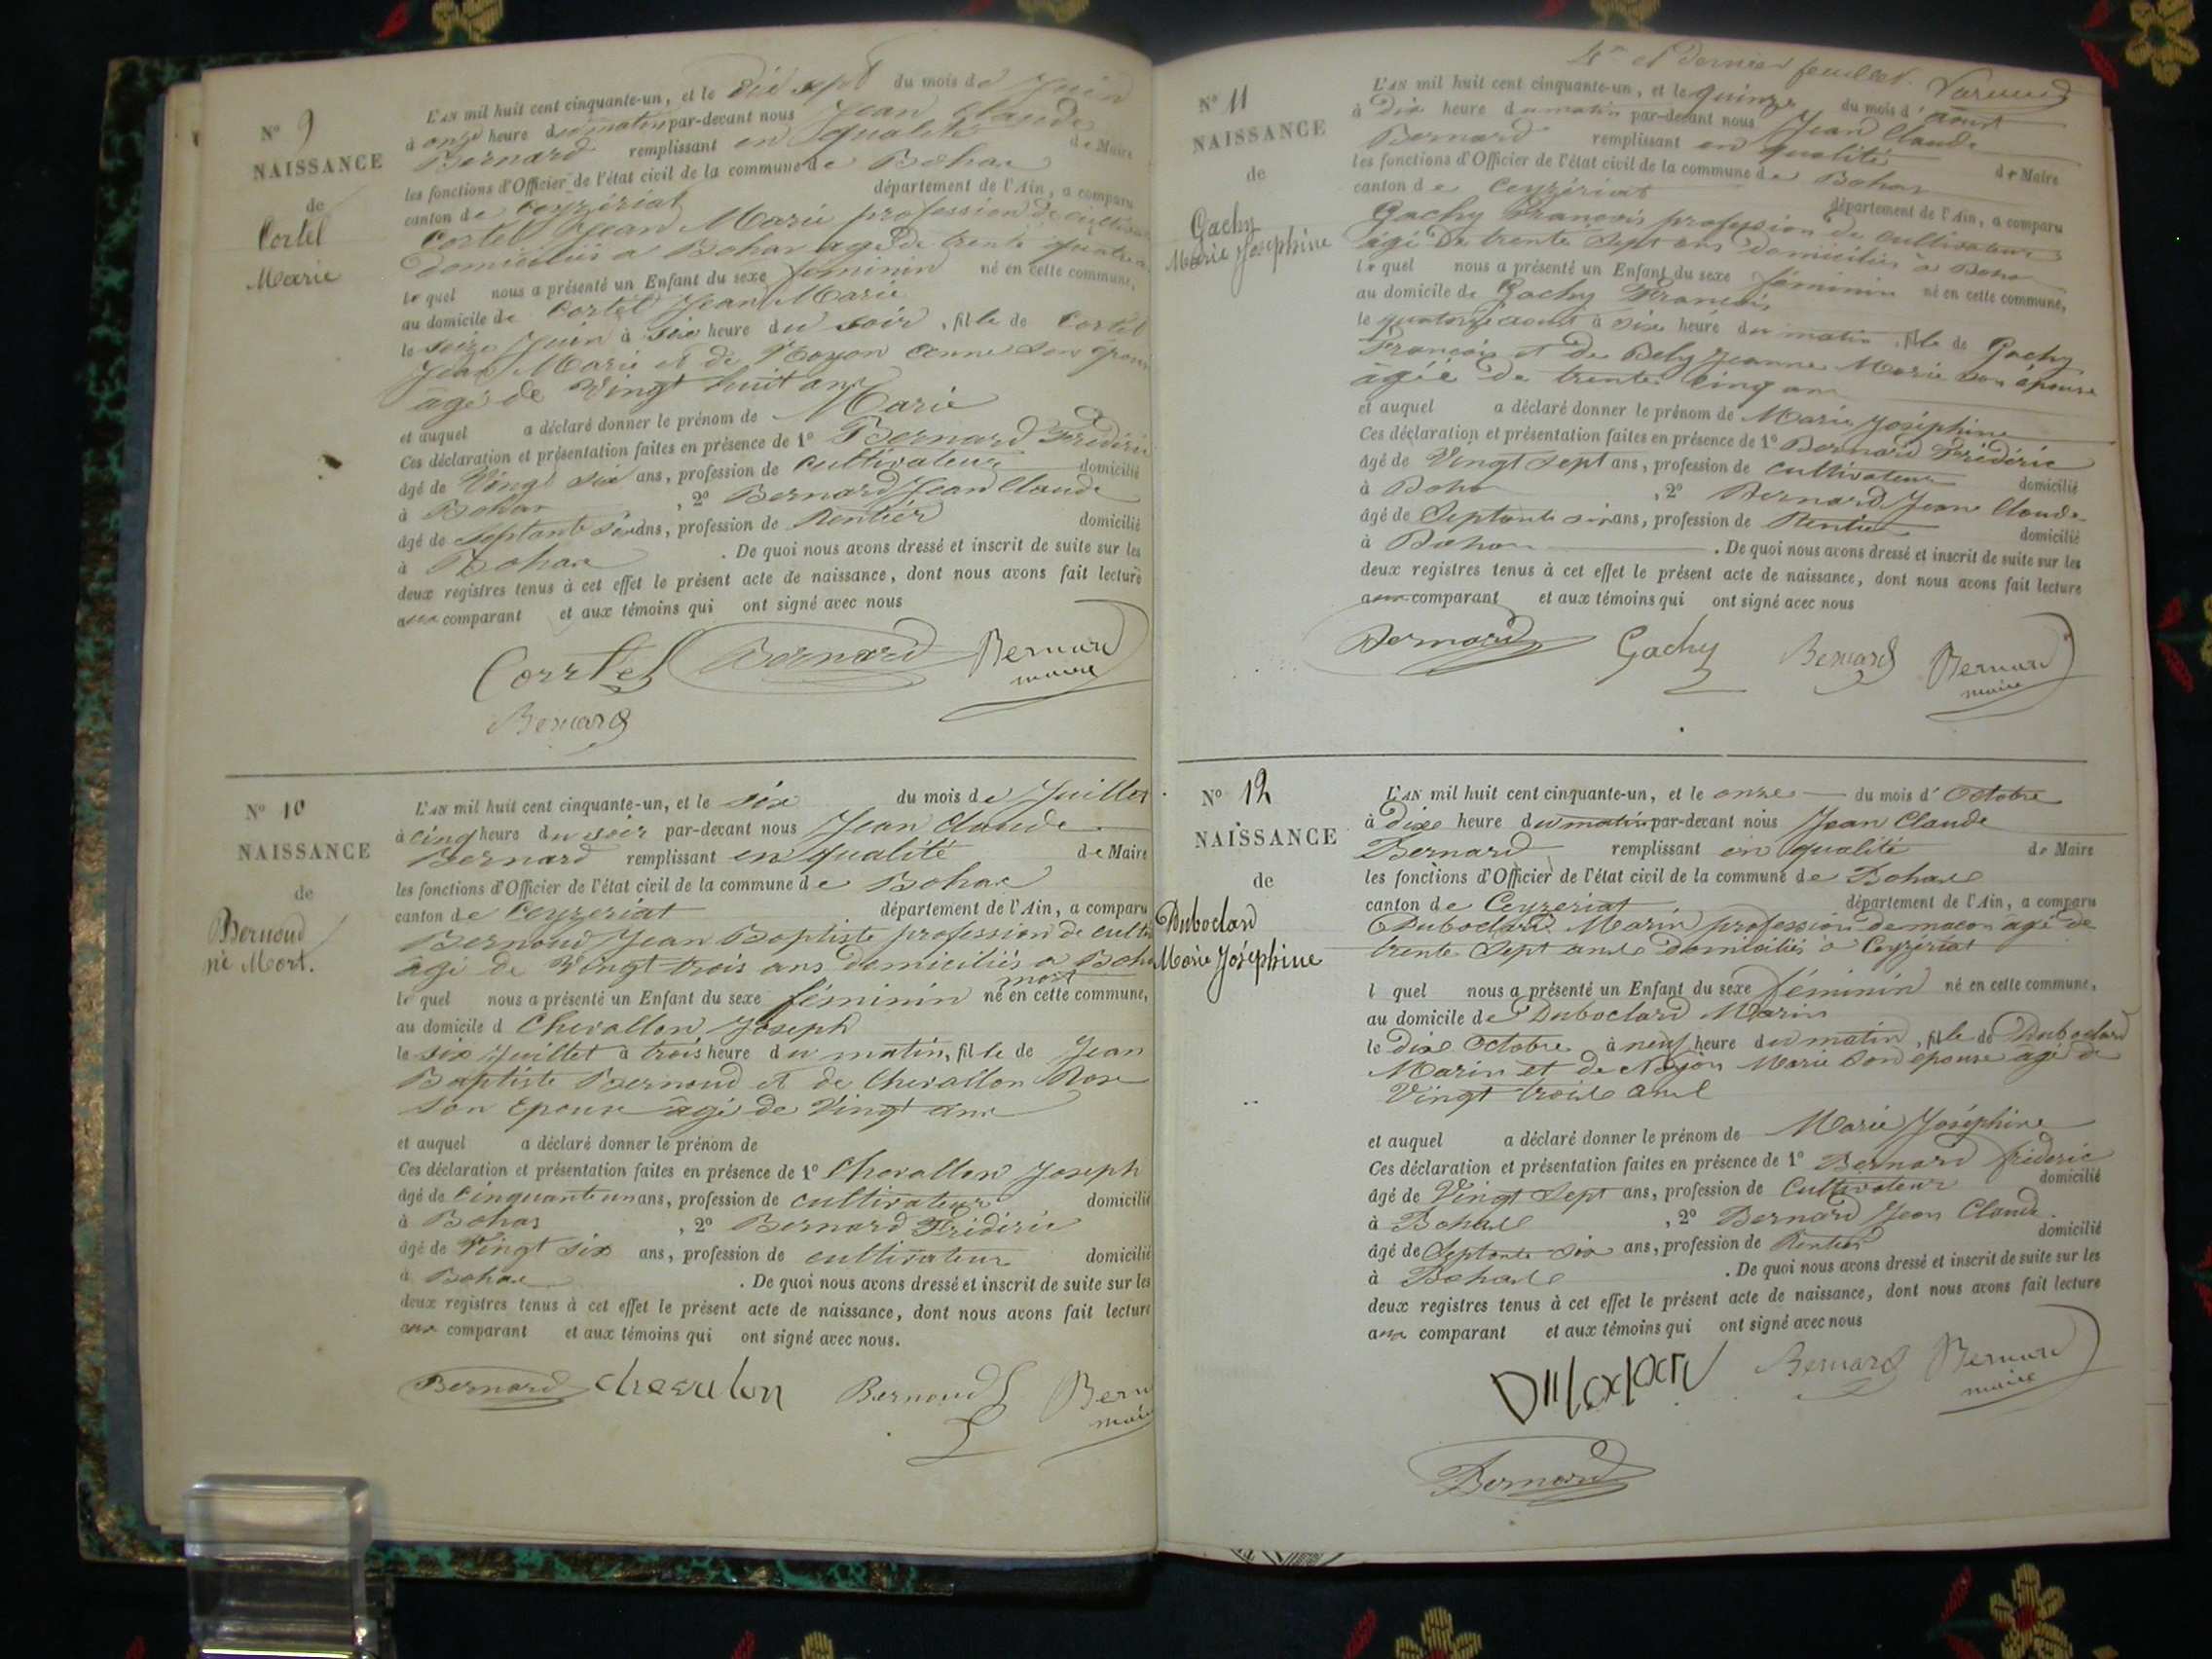 N° 9
NAISSANCE
de
Cortel
Marie
L'AN mil huit cent cinquante-un, et le dix sept du mois de Juin
à onze heure du matin par-devant nous Jean Claude
Bernard remplissant en qualité de Maire
les fonctions d'Officier de l'état civil de la commune de Bohas
canton de Ceyzériat département de l'Ain, a comparu
Cortel Jean Marie profession de
domiciliés a Bohas agé de trente quatre
le quel nous a présenté un Enfant du sexe féminin né en cette commune,
au domicile de Cortel Jean Marie
le seize Juin à six heure du soir, fille de Cortel
Jean Marie et de son épouse
agé de Vingt huit ans
et auquel a déclaré donner le prénom de Marie
Ces déclaration et présentation faites en présence de 1° Bernard Frédéric
âgé de Vingt six ans, profession de cultivateur domicilié
à Bohas, 2° Bernard Jean Claude
âgé de septante six ans, profession de Rentier domicilié
à Bohas. De quoi nous avons dressé et inscrit de suite sur les
deux registres tenus à cet effet le présent acte de naissance, dont nous avons fait lecture
aux comparant et aux témoins qui ont signé avec nous
Corrtel Bernard Bernard
maire
Bernard
N° 10
NAISSANCE
de
Bernoud
né Mort.
L'AN mil huit cent cinquante-un, et le six du mois de Juillet
à cinq heure du soir par-devant nous Jean Claude
Bernard remplissant en qualité de Maire
les fonctions d'Officier de l'état civil de la commune de Bohas
canton de Ceyzeriat département de l'Ain, a comparu
Bernoud Jean Baptiste profession de
âgé de Vingt trois ans domiciliés a
mort
le quel nous a présenté un Enfant du sexe féminin né en cette commune,
au domicile d Chevallon Joseph
le six Juillet à trois heure du matin, fille de Jean
Baptiste Bernoud et de Chevallon Rose
son épouse âgé de Vingt ans
et auquel a déclaré donner le prénom de
Ces déclaration et présentation faites en présence de 1° Chevallon Joseph
âgé de Cinquante un ans, profession de cultivateur domicilié
à Bohas, 2° Bernard Frédéric
âgé de Vingt six ans, profession de cultivateur domicilié
à Bohas. De quoi nous avons dressé et inscrit de suite sur les
deux registres tenus à cet effet le présent acte de naissance, dont nous avons fait lecture
aux comparant et aux témoins qui ont signé avec nous.
Bernard chevalon Bernoud
4e et dernier feuillet.
N° 11
NAISSANCE
de
Gachy
Marie Joséphine
L'AN mil huit cent cinquante-un, et le quinze du mois d'aout
à dix heure du matin par-devant nous Jean Claude
Bernard remplissant en qualité de Maire
les fonctions d'Officier de l'état civil de la commune de Bohas
canton de Ceyzériat département de l'Ain, a comparu
Gachy François profession de cultivateur
âgé de trente sept ans domiciliés à Bohas
le quel nous a présenté un Enfant du sexe féminin né en cette commune,
au domicile de Gachy François
le quatorze aout à six heure du matin, fille de Gachy
François et de Jeanne Marie son épouse
âgée de trente cinq ans
et auquel a déclaré donner le prénom de Marie Joséphine
Ces déclaration et présentation faites en présence de 1° Bernard Frédéric
âgé de Vingt sept ans, profession de cultivateur domicilié
à Bohas, 2° Bernard Jean Claude
âgé de Septante six ans, profession de Rentier domicilié
à Bohas. De quoi nous avons dressé et inscrit de suite sur les
deux registres tenus à cet effet le présent acte de naissance, dont nous avons fait lecture
aux comparant et aux témoins qui ont signé avec nous
Bernard Gachy Bernard Bernard
maire
N° 12
NAISSANCE
de
Duboclard
Marie Joséphine
L'AN mil huit cent cinquante-un, et le onze du mois d'Octobre
à dixe heure du matin par-devant nous Jean Claude
Bernard remplissant en qualité de Maire
les fonctions d'Officier de l'état civil de la commune de Bohas
canton de Ceyzeriat département de l'Ain, a comparu
Duboclard Marin profession de macon âgé de
trente Sept ans domiciliés à Ceyzériat
l quel nous a présenté un Enfant du sexe féminin né en cette commune,
au domicile de Duboclard Marin
le dixe Octobre à neuf heure du matin, fille de Duboclard
Marin et de Marie son épouse âgé de
Vingt trois ans
et auquel a déclaré donner le prénom de Marie Joséphine
Ces déclaration et présentation faites en présence de 1° Bernard frideric
âgé de Vingt Sept ans, profession de Cultivateur domicilié
à Bohas, 2° Bernard Jean Claude
âgé de Septante six ans, profession de Rentier domicilié
à Bohas. De quoi nous avons dressé et inscrit de suite sur les
deux registres tenus à cet effet le présent acte de naissance, dont nous avons fait lecture
aux comparant et aux témoins qui ont signé avec nous
Bernard Bernard
maire
Bernard